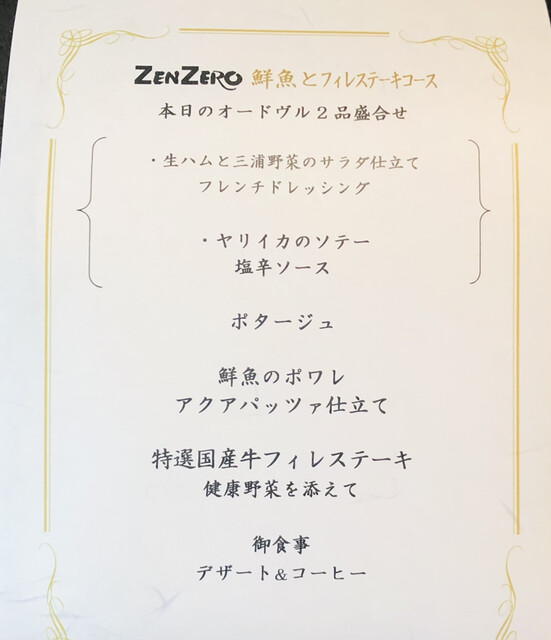 ZENZERO 鮮魚とフィレステーキコース
本日のオードヴル2品盛合せ
・生ハムと三浦野菜のサラダ仕立て
フレンチドレッシング
・ヤリイカのソテー
塩辛ソース
ポタージュ
鮮魚のポワレ
アクアパッツァ仕立て
特選国産牛フィレステーキ
健康野菜を添えて
御食事
デザート&コーヒー